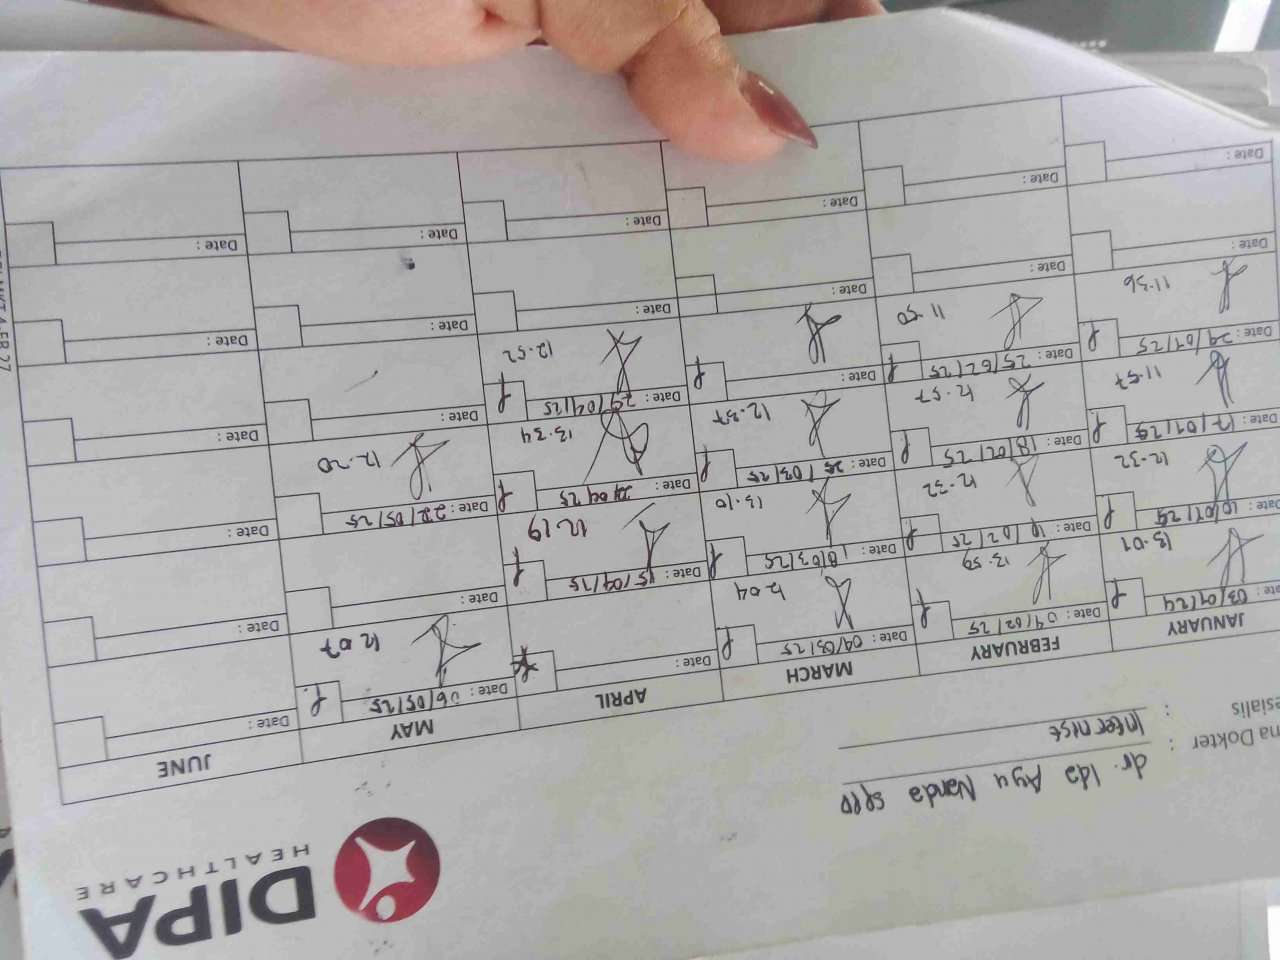 DIPA
HEALTHCARE
ma Dokter : dr. Ida Ayu Nanda SpPD
esialis : Internist
JANUARY FEBRUARY MARCH APRIL MAY JUNE
Date : 03/01/24 Date : 04/02/25 Date : 04/03/25 Date : Date : 06/05/25 Date :
13.01 13.59 12.04 12.07
Date : Date : Date : 18/03/25 Date : 15/04/25 Date : Date :
12.32 12.32 13.10 12.19
Date : 17/01/25 Date : 18/02/25 Date : 25/03/25 Date : Date : 22/05/25 Date :
11.57 12.57 12.37 13.34 12.20
Date : Date : 25/02/25 Date : Date : 29/04/25 Date : Date :
11.36 11.50 12.52
Date : Date : Date : Date : Date : Date :
Date : Date : Date : Date : Date : Date :